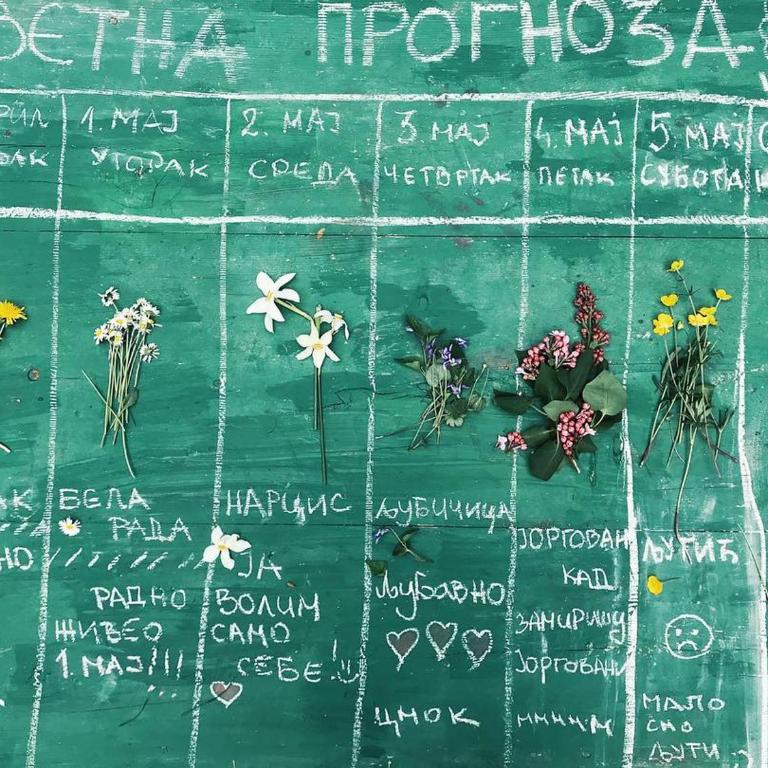 ЕТНА ПРОГНОЗА
РИЛ
АК
1. МАЈ
УТОРАК
2. МАЈ
СРЕДА
3. МАЈ
ЧЕТВРТАК
4. МАЈ
ПЕТАК
5. МАЈ
СУБОТА
АК
НО
БЕЛА
РАДА
РАДНО
ЖИВЕО
1. МАЈ!!!
НАРЦИС
ЈА
ВОЛИМ
САМО
СЕБЕ!
ЉУБИЧИЦА
ЉУБАВНО
ЦМОК
ЈОРГОВАН
КАД
ЗАМИРИШУ
ЈОРГОВАНИ
МММММ
ЉУТИЋ
МАЛО
СМО
ЉУТИ